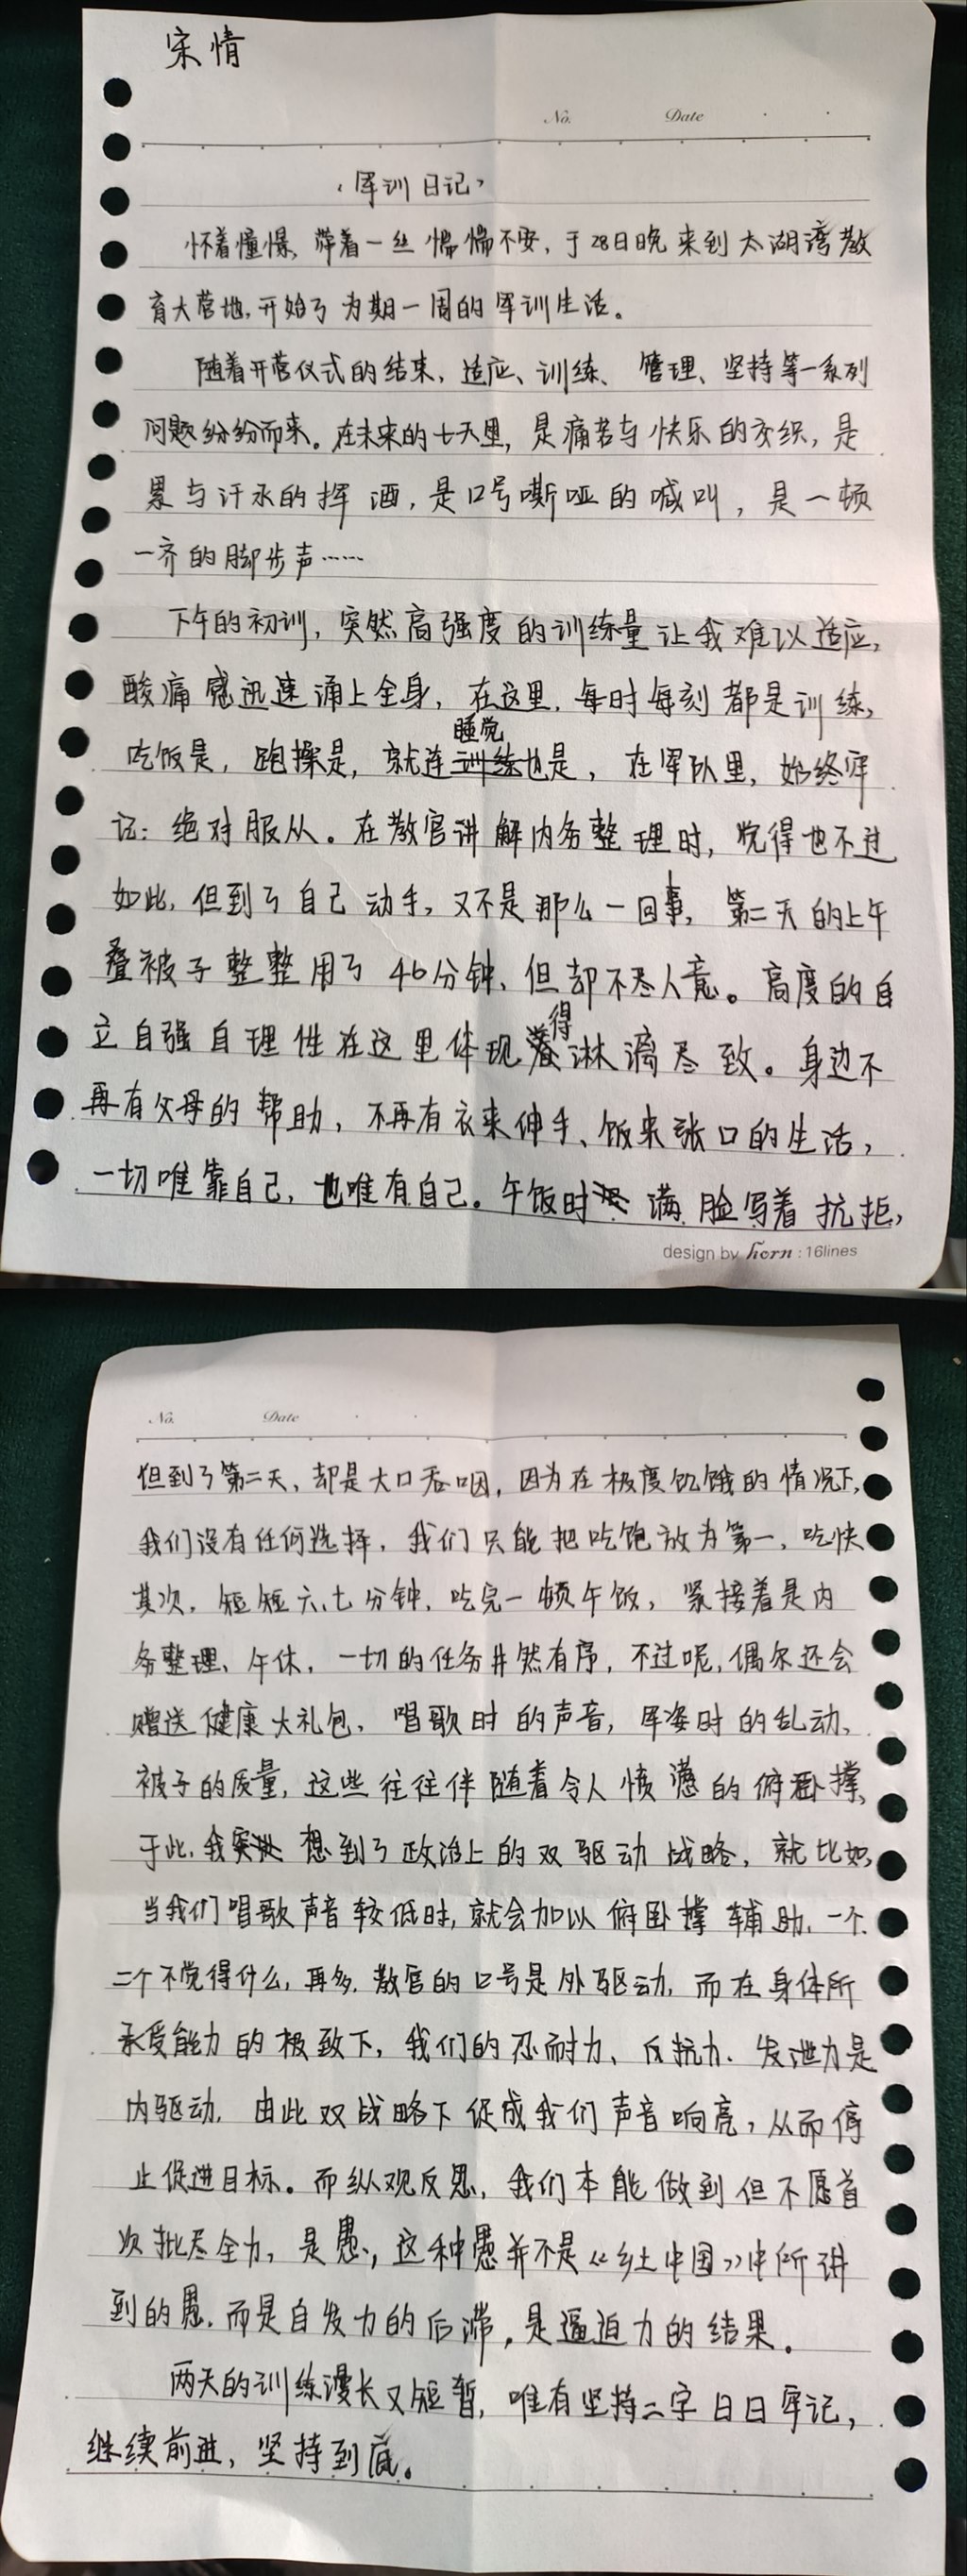 宋情
No. Date
《军训日记》
怀着憧憬,带着一丝惴惴不安,于28日晚来到太湖湾教
育大营地,开始了为期一周的军训生活。
随着开营仪式的结束,适应、训练、管理、坚持等一系列
问题纷纷而来。在未来的七天里,是痛苦与快乐的交织,是
累与汗水的挥洒,是口号嘶哑的喊叫,是一顿
一齐的脚步声……
下午的初训,突然高强度的训练量让我难以适应,
酸痛感迅速涌上全身,在这里,每时每刻都是训练,
吃饭是,跑操是,就连睡觉也是,在军队里,始终牢
记:绝对服从。在教官讲解内务整理时,觉得也不过
如此,但到了自己动手,又不是那么一回事,第二天的上午
叠被子整整用了46分钟,但却不尽人意。高度的自
立自强自理性在这里体现得淋漓尽致。身边不
再有父母的帮助,不再有衣来伸手、饭来张口的生活,
一切唯靠自己,也唯有自己。午饭时满脸写着抗拒,
design by horn : 16lines
No. Date
但到了第二天,却是大口吞咽,因为在极度饥饿的情况下,
我们没有任何选择,我们只能把吃饱放为第一,吃快
其次,短短六、七分钟,吃完一顿午饭,紧接着是内
务整理、午休,一切的任务井然有序,不过呢,偶尔还会
赠送健康大礼包,唱歌时的声音,军姿时的乱动,
被子的质量,这些往往伴随着令人愤懑的俯卧撑,
于此,我想到了政治上的双驱动战略,就比如,
当我们唱歌声音较低时,就会加以俯卧撑辅助,一个
二个不觉得什么,再多,教官的口号是外驱动,而在身体所
承受能力的极致下,我们的忍耐力、反抗力、发泄力是
内驱动,由此双战略下促成我们声音响亮,从而停
止促进目标。而纵观反思,我们本能做到但不愿首
次批尽全力,是愚,这种愚并不是《乡土中国》中所讲
到的愚,而是自发力的后滞,是逼迫力的结果。
两天的训练漫长又短暂,唯有坚持二字日日牢记,
继续前进,坚持到底。